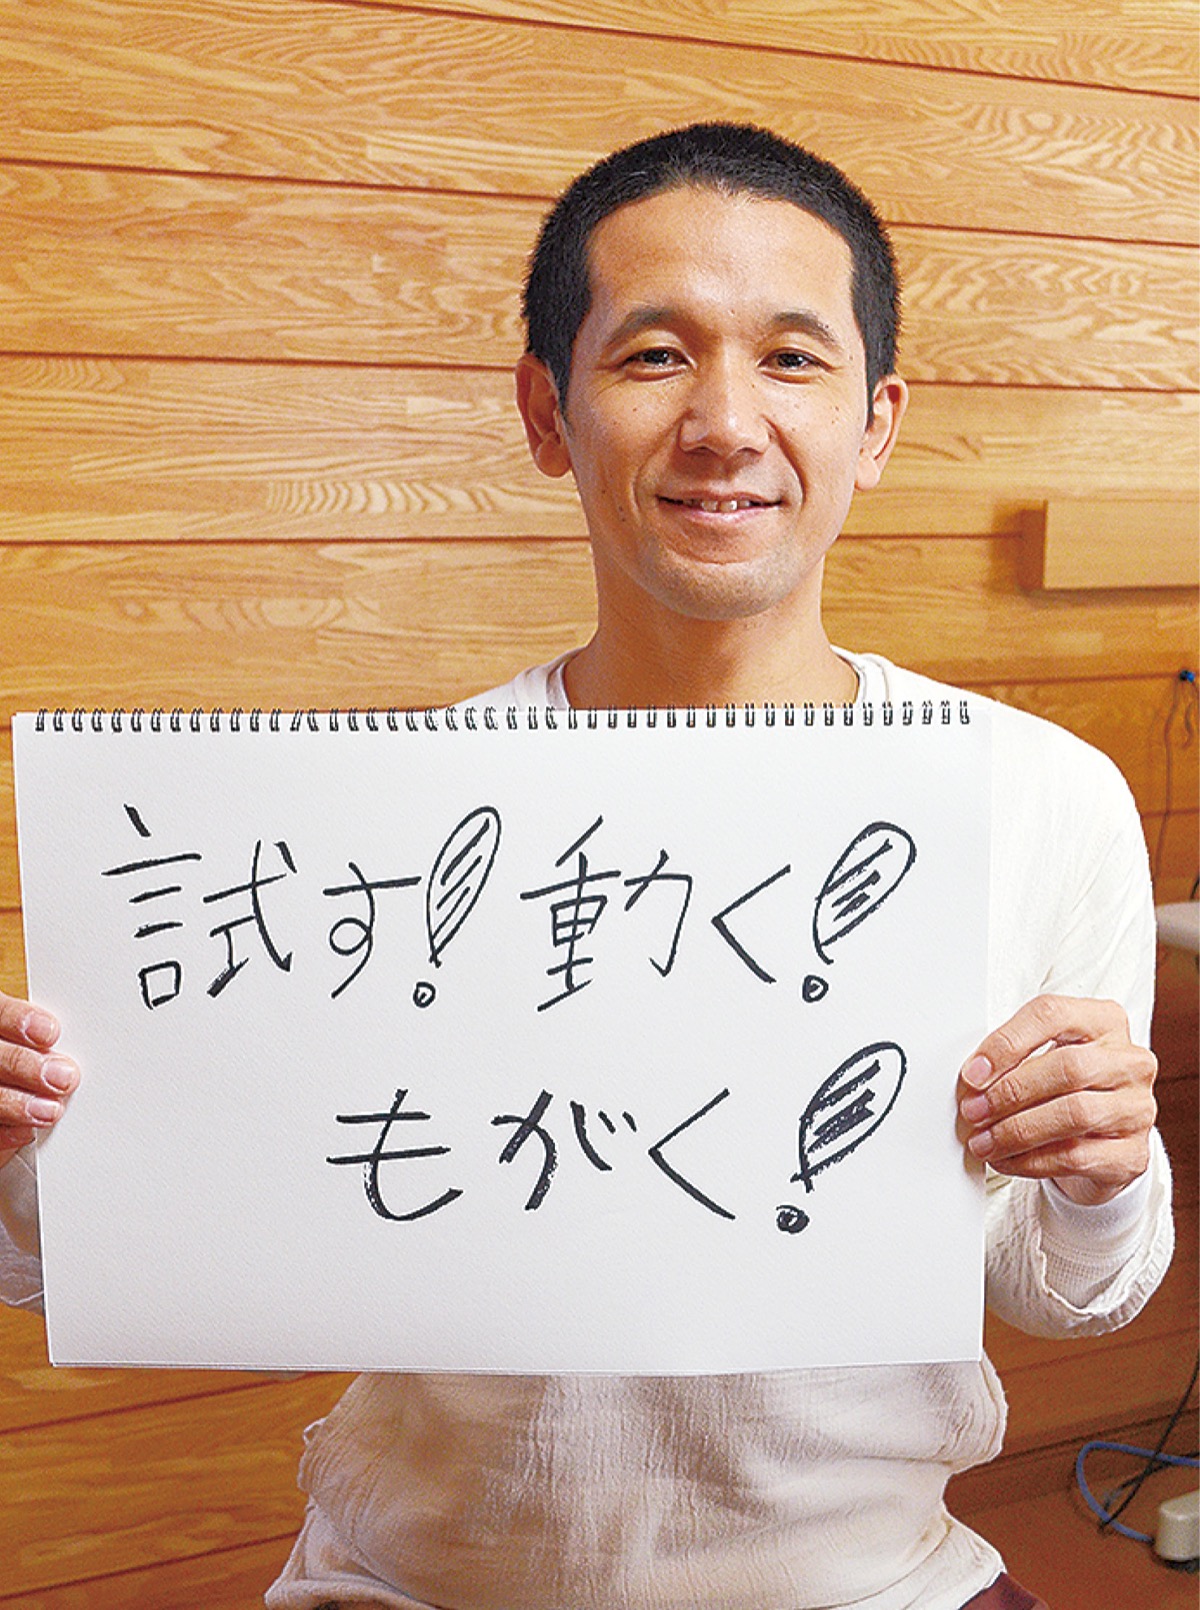 試す!動く!
もがく!